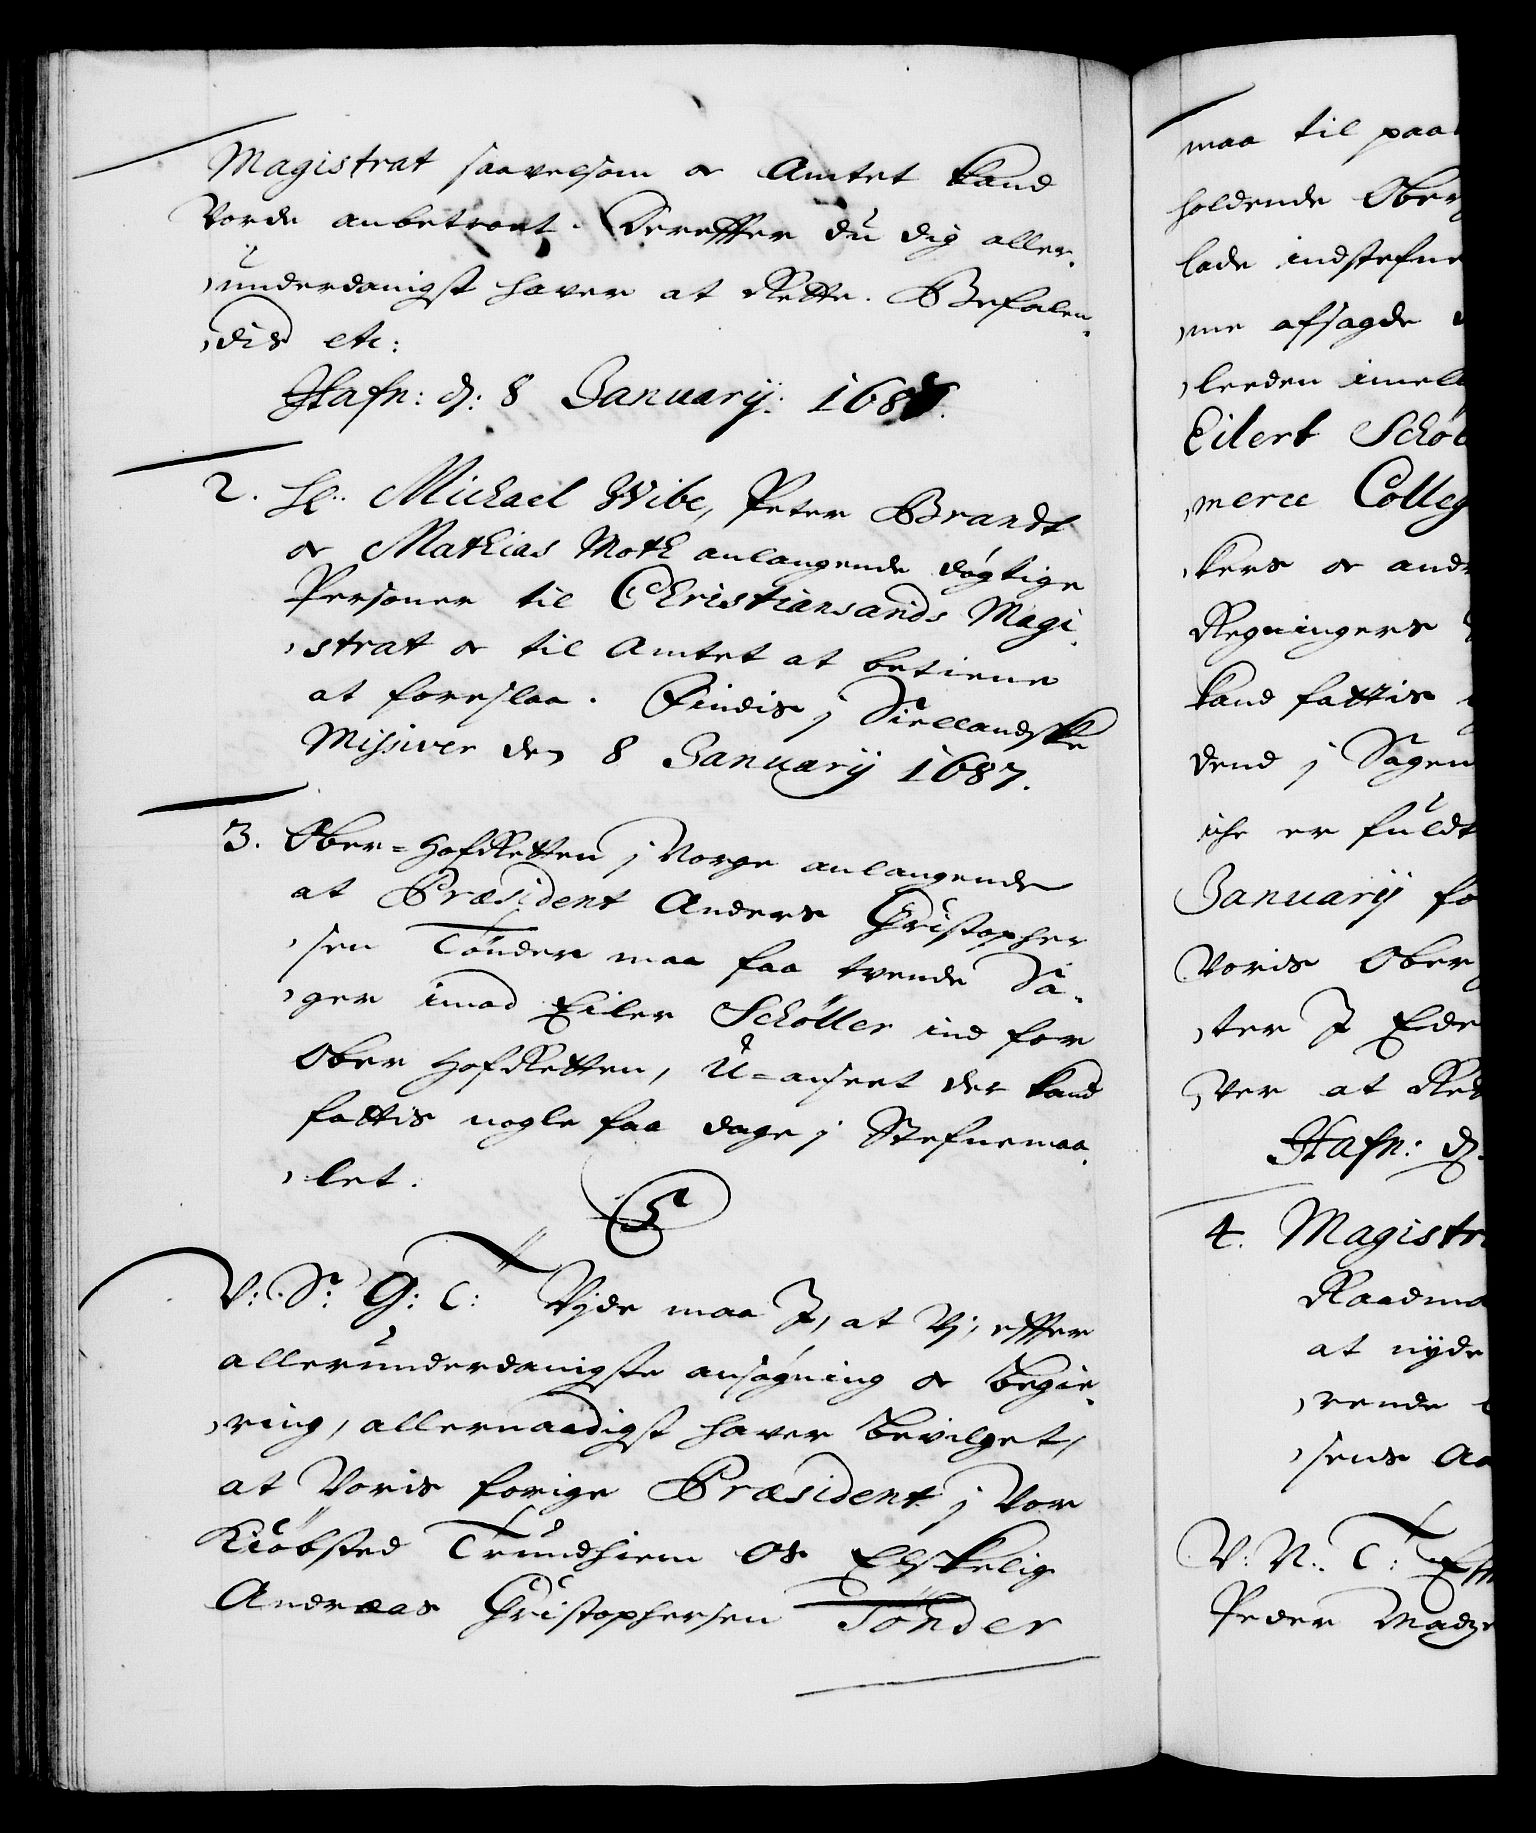 Magistrat saavelsom oc Amtet kand
Vorde anbetroet. Dereffter du dig aller-
underdanigst haver at Rette. Befalen-
dis etc:
Hafn: d: 8 January: 1687.
2. Hr: Michael Wibe, Peter Brandt
oc Mathias Moth anlangende døgtige
Personer til Christiansands Magi-
strat oc til Amtet at betiene
at foreslaa. Findis j Siellandske
Missiver den 8 Januarij 1687.
3. Ober-HofRetten j Norge anlangende
at Præsident Anders Christopher
sen Tønder maa faa tvende Sa-
ger imod Eiler Schøller ind for
Ober HofRetten, U-anseet der kand
fattis nogle faa dage j Stefnemaa-
let.
C5
V: Sr: G: T: Vide maa I, at Vj, effter
allerunderdanigste ansøgning oc Begie-
ring, allernaadigst haver Bevilget,
at Voris forige Præsident j Vor
Kiöbsted Trundhiem Os Elskelig
Andreas Christophersen Tønder
maa til paa
holdende Ober
lade indstefne
me afsagde
leeden imell
Eilert Schøl
merce Colleg
kers oc andr
Regningers
kand fattis
dend j Sagen
iche er fuldt
Januarij fo
Voris Ober
ter I Eder
ver at Ret
Hafn: d.
4. Magistra
Raadma
at nyde
rende
sens Aa
V: N: T: Eff
Peder Madz